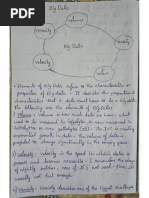 Big Data
Volume
Velocity
Veracity
Big Data
Variety
Value
• Elements of Big Data refers to the characteristics
properties of big data. It describes the important
characteristics that a data must have to be a big data
the following are the elements of Big Data:
① Volume:- Volume is how much data we have, what
used to be measured in Gigabytes is now measured in
Zettabytes or even Yottabytes (YB). The IoT is creating
exponential growth in data. The volume of data is
projected to change significantly in the coming years.
② Velocity:- velocity is the speed in which data is
process and becomes accessible. I remember the days
of nightly batches, now if it's not real-time it's
usually not fast enough.
③ Variety:- Variety describes one of the biggest challenge